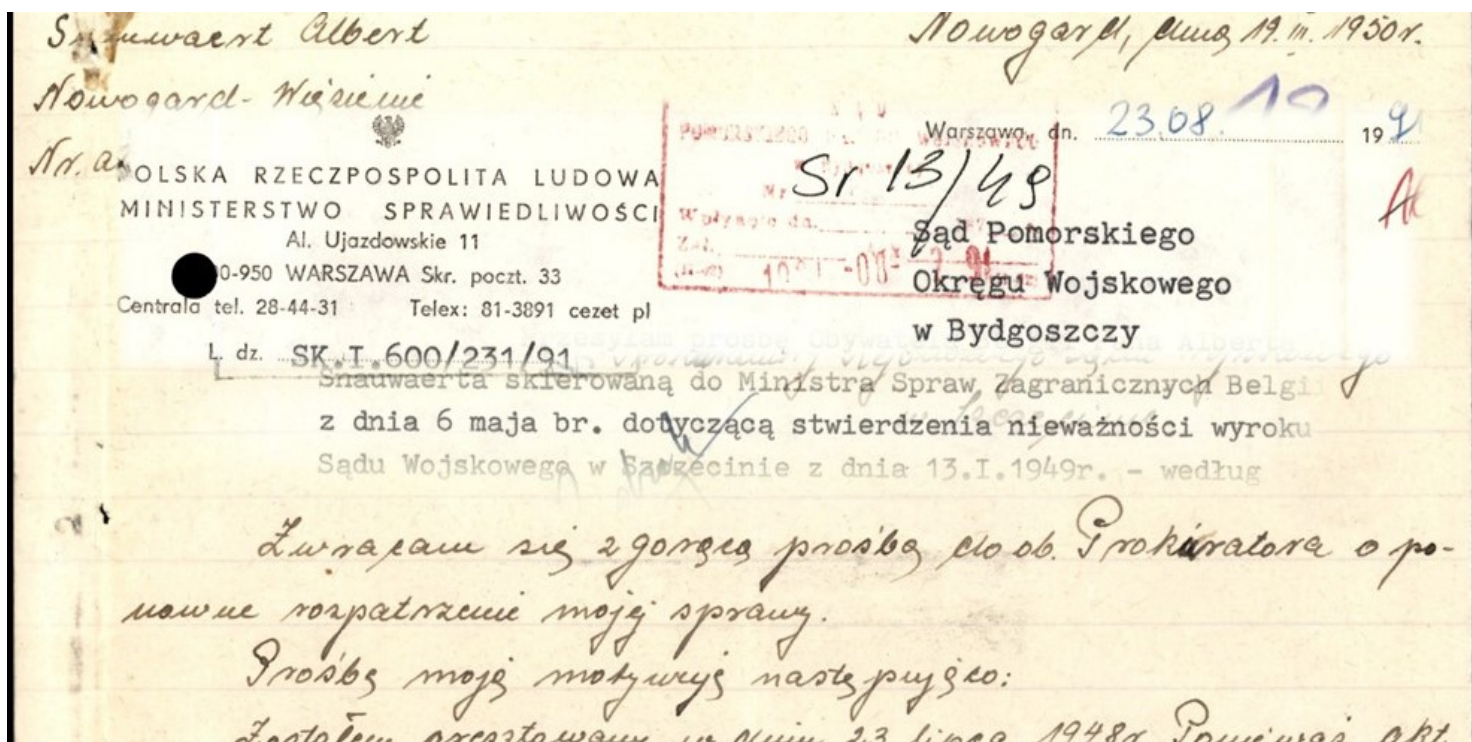 Albert
Nowogard, dnia 19.III.1950r.
Nowogard-Więzienie
Nr. a
Warszawa, dn. 23.08. 19 91
10
Sr 13/49
POLSKA RZECZPOSPOLITA LUDOWA
MINISTERSTWO SPRAWIEDLIWOŚCI
Al. Ujazdowskie 11
0-950 WARSZAWA Skr. poczt. 33
Centrala tel. 28-44-31 Telex: 81-3891 cezet pl
L. dz. SK.I.600/231/91
Wpłynęło dn.
Sąd Pomorskiego
Okręgu Wojskowego
w Bydgoszczy
prośbę Obywatela Alberta
Snauwaerta skierowaną do Ministra Spraw Zagranicznych Belgii
z dnia 6 maja br. dotyczącą stwierdzenia nieważności wyroku
Sądu Wojskowego w Szczecinie z dnia 13.I.1949r. - według
Zwracam się z gorącą prośbą do ob. Prokuratora o po-
nowne rozpatrzenie mojej sprawy.
Prośbę moją motywuję następująco:
Zostałem aresztowany w dniu 23 lipca 1948r. Ponieważ akt